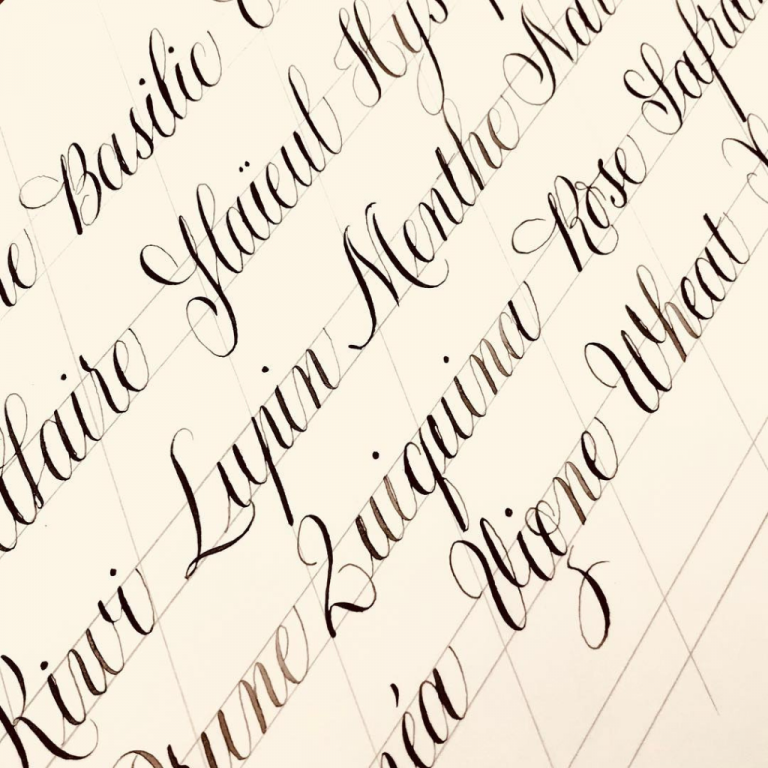 Basilic
claire Glaïeul Hys
Kiwi Lupin Menthe Nar
Prune Quiquina Rose Safran
éa Vigne Wheat